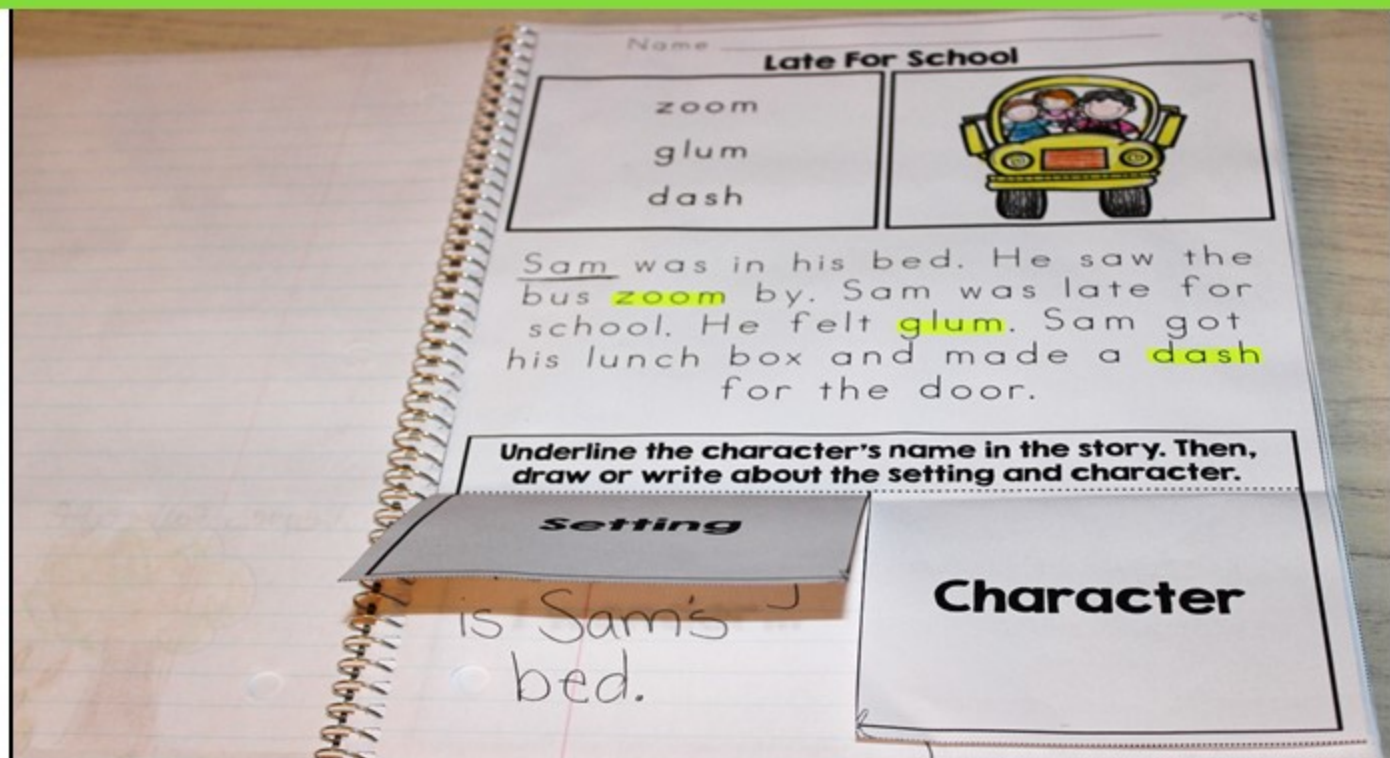 Name
Late For School
zoom
glum
dash
Sam was in his bed. He saw the
bus zoom by. Sam was late for
school. He felt glum. Sam got
his lunch box and made a dash
for the door.
Underline the character's name in the story. Then,
draw or write about the setting and character.
Setting
Character
is Sam's
bed.